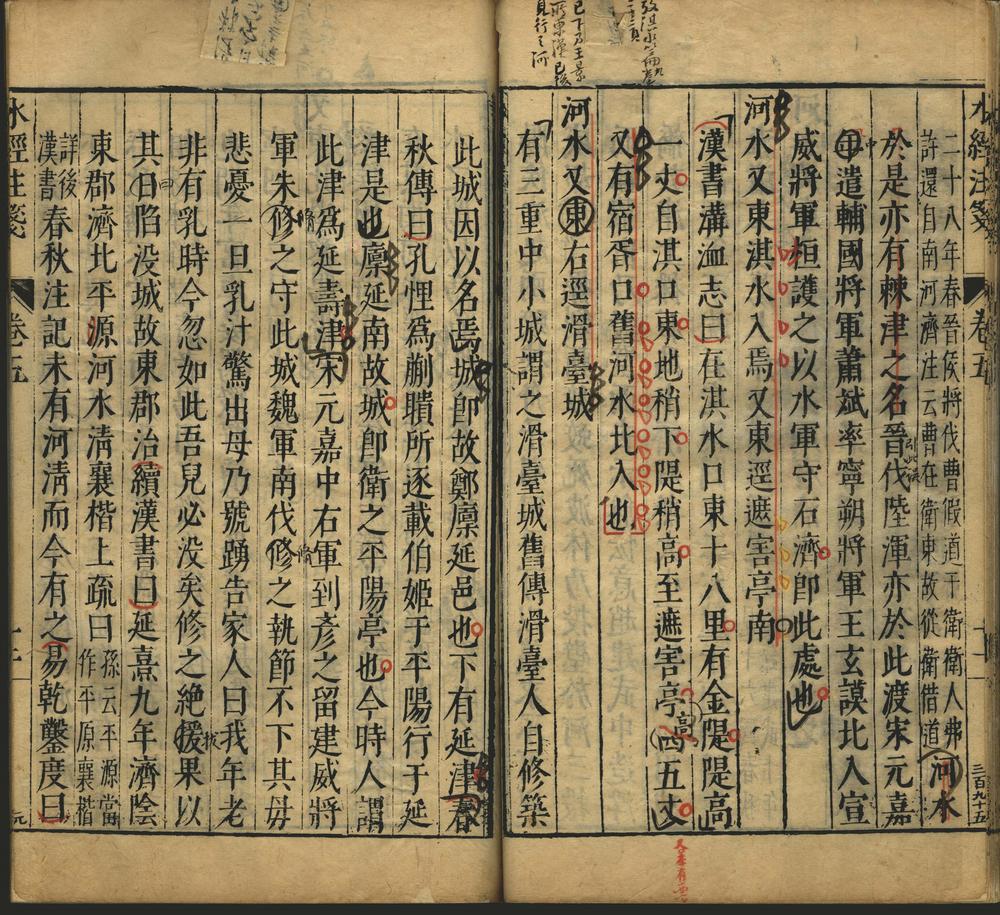 水經注箋
卷五
十一
三百九十五
二十八年春晉侯將伐曹假道于衛衛人弗
許還自南河濟注云曹在衛東故從衛借道
河水
於是亦有棘津之名晉伐陸渾亦於此渡宋元嘉
中遣輔國將軍蕭斌率寧朔將軍王玄謨北入宣
威將軍桓護之以水軍守石濟卽此處也
河水又東淇水入焉又東逕遮害亭南
漢書溝洫志曰在淇水口東十八里有金隄隄高
一丈自淇口東地稍下隄稍高至遮害亭高四五丈
又有宿胥口舊河水北入也
河水又東右逕滑臺城
有三重中小城謂之滑臺城舊傳滑臺人自修築
此城因以名焉城卽故鄭廩延邑也下有延津春
秋傳曰孔悝爲蒯聵所逐載伯姬于平陽行于延
津是也廩延南故城卽衛之平陽亭也今時人謂
此津爲延壽津宋元嘉中右軍到彥之留建威將
軍朱修之守此城魏軍南伐修之執節不下其母
悲憂一旦乳汁驚出母乃號踴告家人曰我年老
非有乳時今忽如此吾兒必没矣修之絶援果以
其日陷没城故東郡治續漢書曰延熹九年濟陰
東郡濟北平源河水清襄楷上疏曰
孫云平源當
作平原襄楷
詳後
漢書
春秋注記未有河清而今有之易乾鑿度曰
水經注箋
卷五
十一